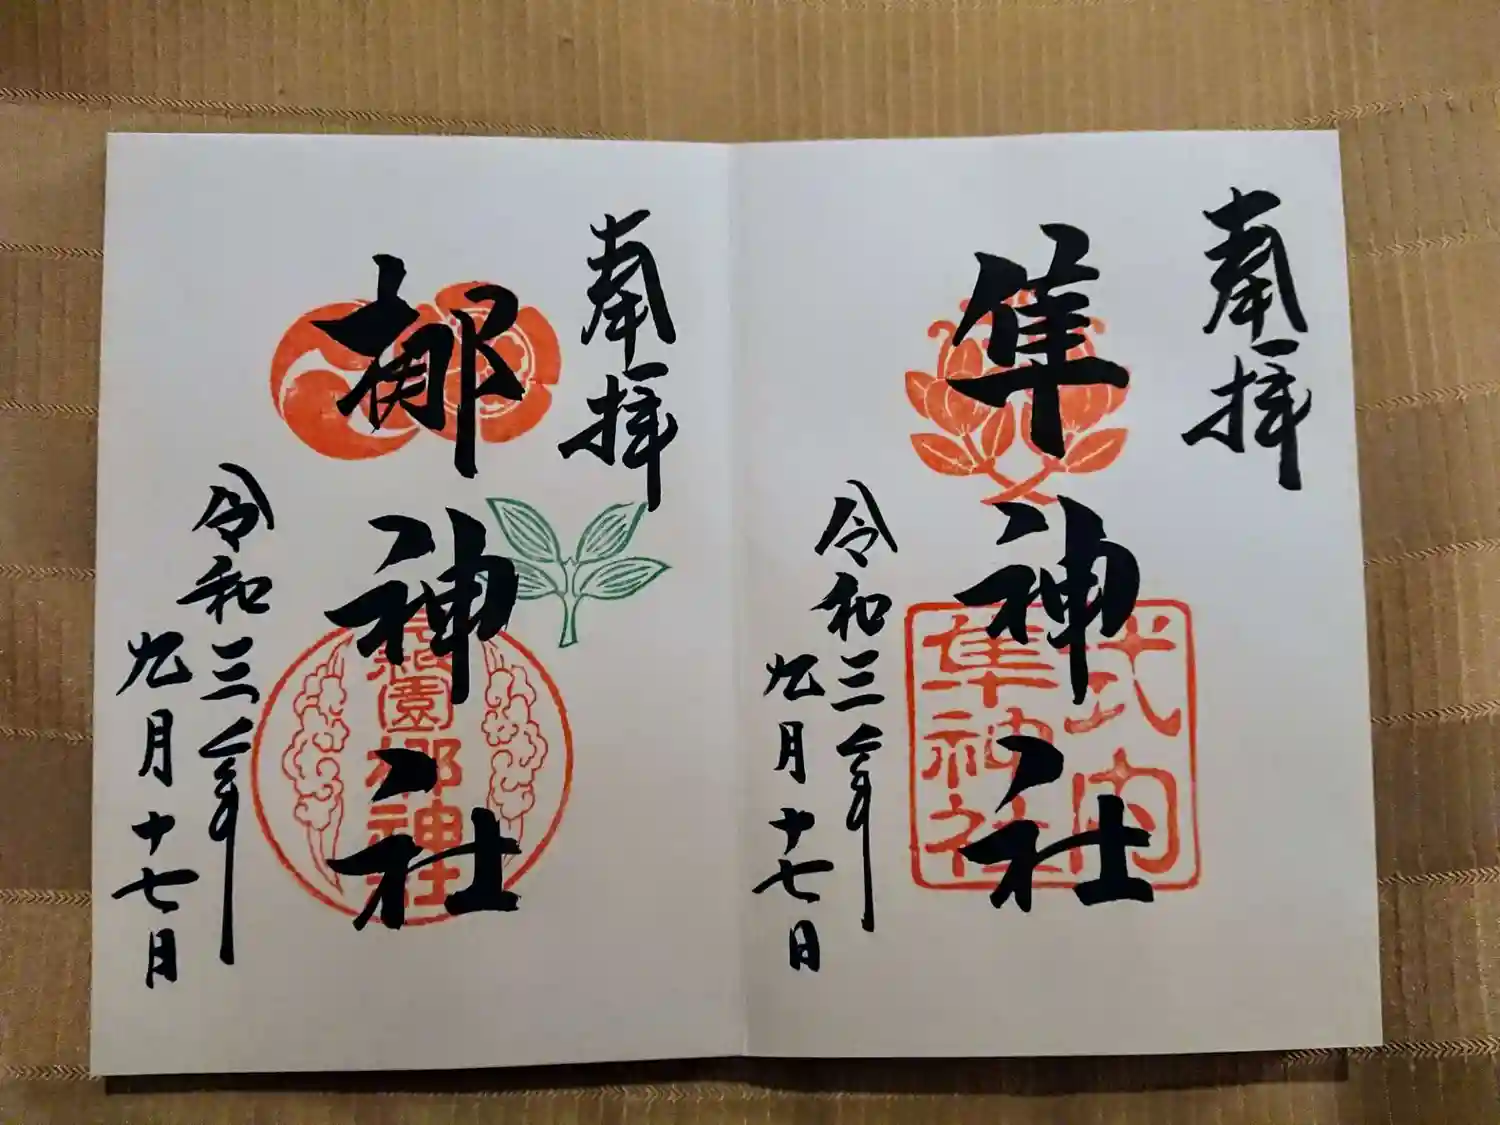 奉拝
隼神社
令和三年
九月十七日
式内
隼神社
奉拝
梛神社
令和三年
九月十七日
元祇園梛神社